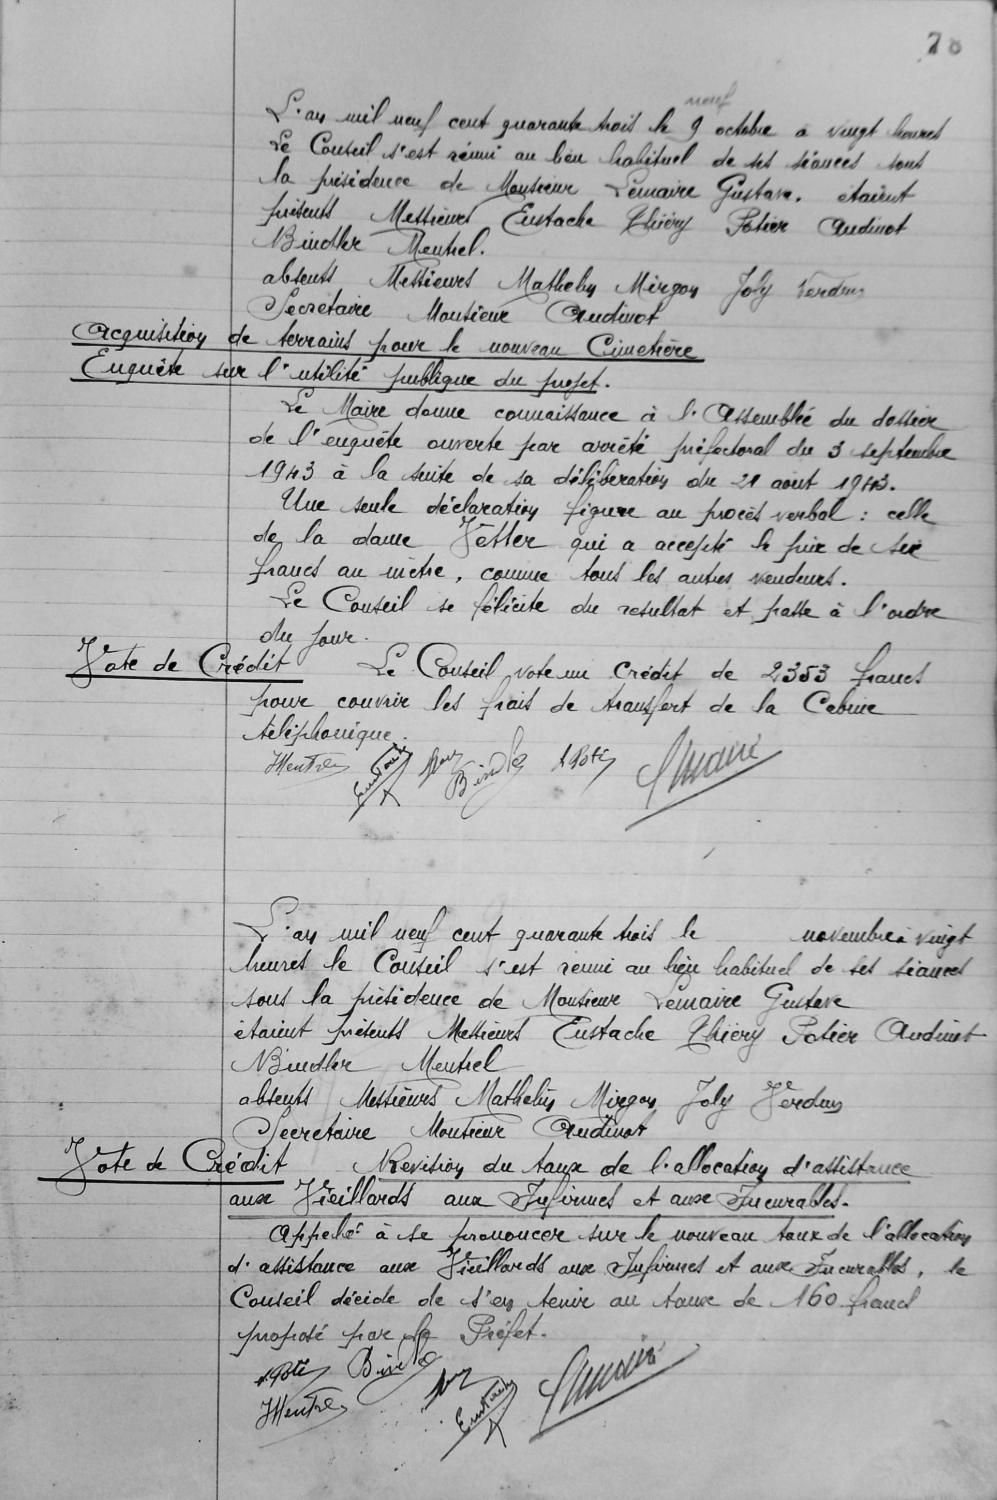 78
neuf
L'an mil neuf cent quarante trois le 9 octobre à vingt heures
Le Conseil s'est réuni au lieu habituel de ses séances sous
la présidence de Monsieur Lemaire Gustave. étaient
présents Messieurs Eustache Thiéry Potier Audinot
Bindler Mentrel.
absents Messieurs Mathelin Mirgon Joly Verdun
Secrétaire Monsieur Audinot
Acquisition de terrains pour le nouveau Cimetière
Enquête sur l'utilité publique du projet.
Le Maire donne connaissance à l'Assemblée du dossier
de l'enquête ouverte par arrêté préfectoral du 3 septembre
1943 à la suite de sa délibération du 21 aout 1943.
Une seule déclaration figure au procès verbal : celle
de la dame Vetter qui a accepté le prix de six
francs au mètre, comme tous les autres vendeurs.
Le Conseil se félicite du resultat et passe à l'ordre
du jour.
Vote de Crédit Le Conseil vote un crédit de 2353 francs
pour couvrir les frais de transfert de la Cabine
téléphonique.
Mentrel Eustache Bindler Potier Lemaire
L'an mil neuf cent quarante trois le novembre à vingt
heures le Conseil s'est réuni au lieu habituel de ses séances
sous la présidence de Monsieur Lemaire Gustave
étaient présents Messieurs Eustache Thiéry Potier Audinot
Bindler Mentrel
absents Messieurs Mathelin Mirgon Joly Verdun
Secrétaire Monsieur Audinot
Vote de Crédit Revision du taux de l'allocation d'assistance
aux Vieillards aux Infirmes et aux Incurables.
Appelé à se prononcer sur le nouveau taux de l'allocation
d'assistance aux Vieillards aux Infirmes et aux Incurables, le
Conseil décide de s'en tenir au taux de 160 francs
proposé par le Préfet.
Potier Bindler Lemaire
Mentrel Eustache